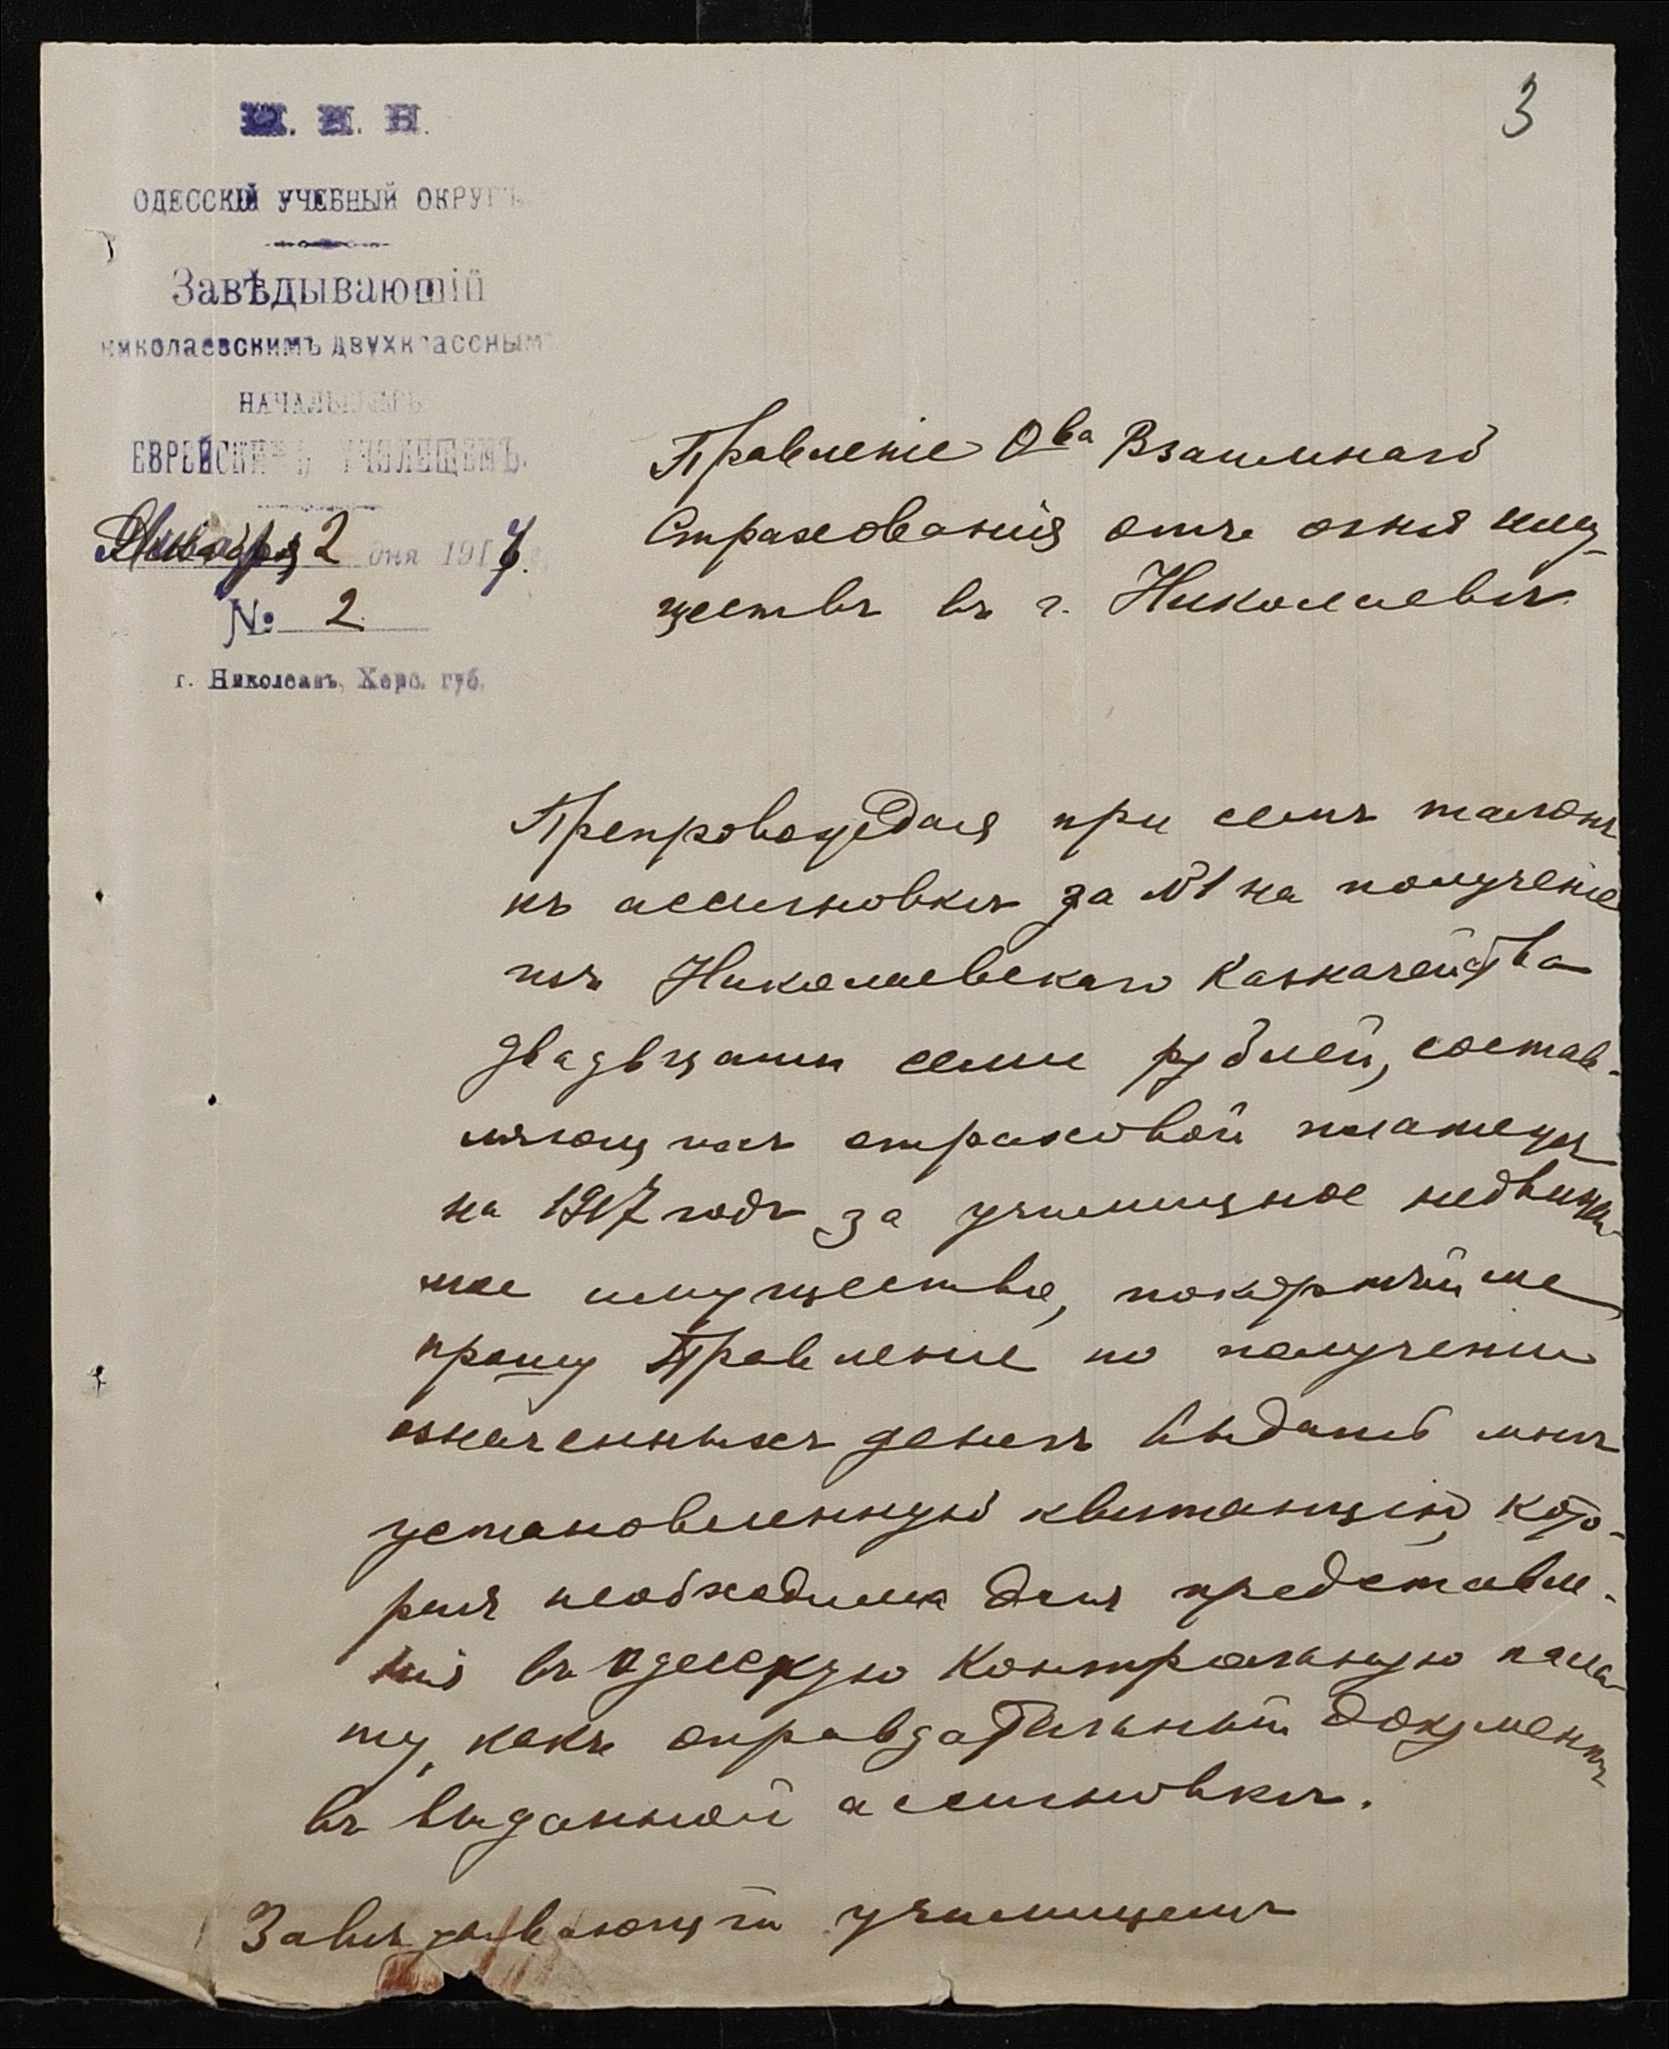 3
М. Н. П.
ОДЕССКІЙ УЧЕБНЫЙ ОКРУГЪ
Завѣдывающій
николаевскимъ двухкласснымъ
НАЧАЛЬНЫМЪ
ЕВРЕЙСКИМЪ УЧИЛИЩЕМЪ.
Января 2 дня 1917
№ 2
г. Николаевъ, Херс. губ.
Правленіе Ова Взаимнаго
Страхованія отъ огня иму-
ществъ въ г. Николаевѣ
Препровождая при семъ талонъ
къ ассигновкѣ за №1 на полученіе
изъ Николаевскаго Казначейства
двадцати семи рублей, состав-
ляющихъ страховой платежъ
на 1917 годъ за училищное недвижи-
мое имущество, покорнѣйше
прошу Правленіе по полученіи
означенныхъ денегъ выдать мнѣ
установленную квитанцію, кото-
рая необходима для представле-
нія въ Одесскую Контрольную пала-
ту, какъ оправдательный документъ
въ выданной ассигновкѣ.
Завѣдывающій училищемъ